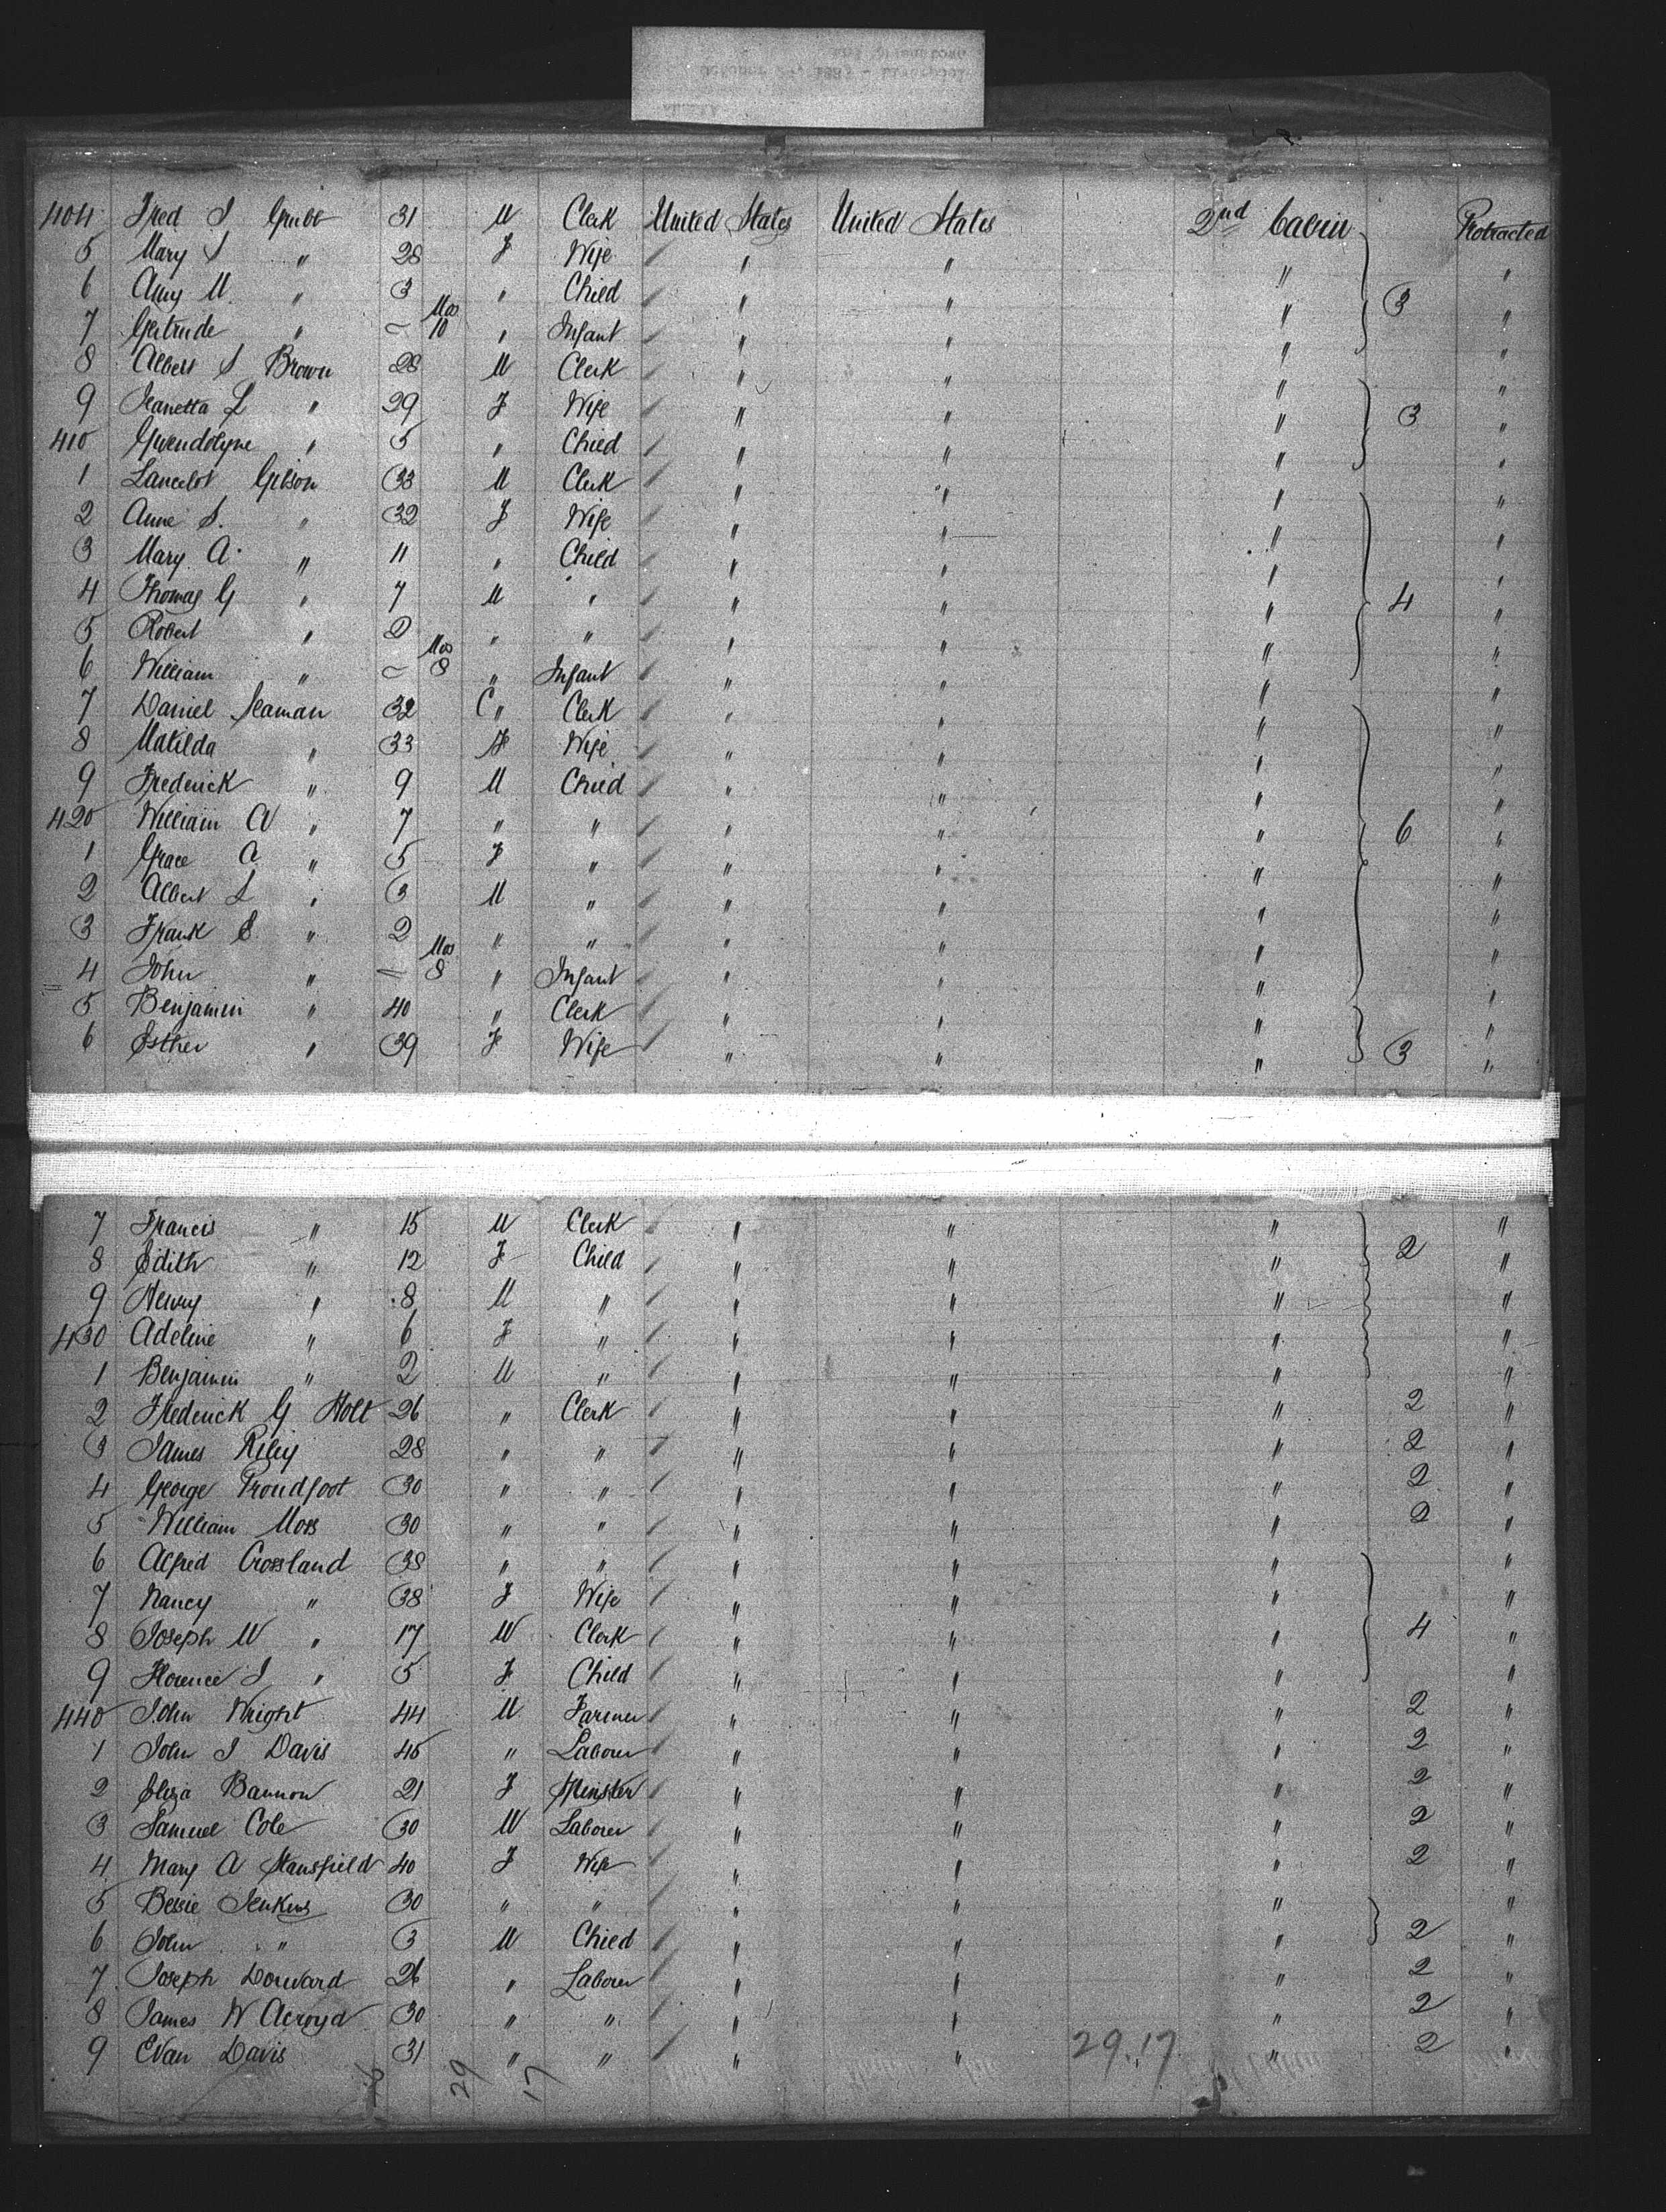 404 Fred J Grubb 31 M Clerk United States United States 2nd Cabin Protracted
5 Mary S " 28 F Wife " " " "
6 Amy M. " 3 " Child " " " 3 "
7 Gertrude " – Mos 10 " Infant " " " "
8 Albert S Brown 28 M Clerk " " " "
9 Jeanetta L " 29 F Wife " " " 3 "
410 Gwendolyne " 5 " Child " " " "
1 Lancelot Gibson 33 M Clerk " " " "
2 Anne S. " 32 F Wife " " " "
3 Mary A. " 11 " Child " " " "
4 Thomas G " 7 M " " " " 4 "
5 Robert " 2 " " " " " "
6 William " – Mos 8 " Infant " " " "
7 Daniel Seaman 32 " Clerk " " " "
8 Matilda " 33 F Wife " " " "
9 Frederick " 9 M Child " " " "
420 William A " 7 " " " " " 6 "
1 Grace A " 5 F " " " " "
2 Albert L " 3 M " " " " "
3 Frank E. " 2 " " " " " "
4 John " – Mos 8 " Infant " " " "
5 Benjamin " 40 " Clerk " " " "
6 Esther " 39 F Wife " " " 3 "
7 Francis " 15 M Clerk " " " "
8 Edith " 12 F Child " " " 2 "
9 Henry " 8 M " " " " "
430 Adeline " 6 F " " " " "
1 Benjamin " 2 M " " " " "
2 Frederick G Holt 26 " Clerk " " " 2 "
3 James Riley 28 " " " " " 2 "
4 George Proudfoot 30 " " " " " 2 "
5 William Moss 30 " " " " " 2 "
6 Alfred Crossland 38 " " " " " "
7 Nancy " 38 F Wife " " " "
8 Joseph W " 17 M Clerk " " " 4 "
9 Florence J " 5 F Child " " " "
440 John Wright 44 M Farmer " " " 2 "
1 John J Davis 45 " Laborer " " " 2 "
2 Eliza Bannon 21 F Spinster " " " 2 "
3 Samuel Cole 30 M Laborer " " " 2 "
4 Mary A Stansfield 40 F Wife " " " 2 "
5 Bessie Jenkins 30 " " " " " "
6 John " 3 M Child " " " 2 "
7 Joseph Dorward 26 " Laborer " " " 2 "
8 James W Acroyd 30 " " " " " 2 "
9 Evan Davis 31 " " " " 29.17 " 2 "
29 17